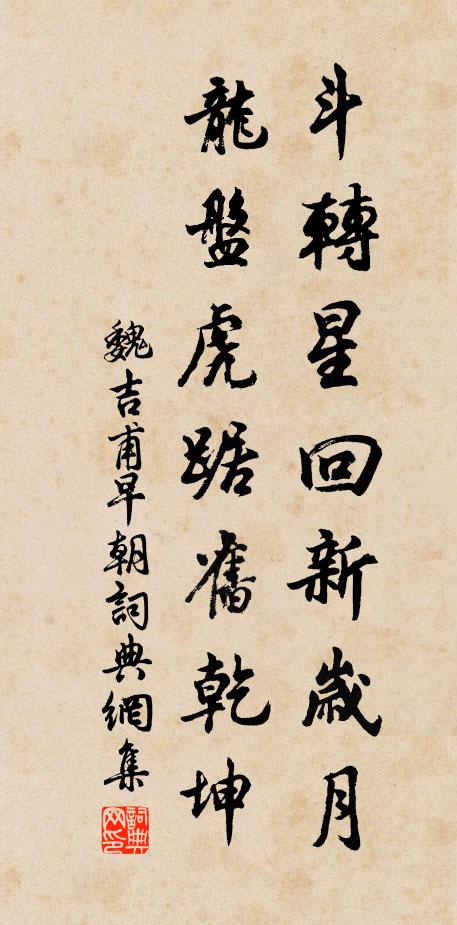 斗轉星回新歲月
龍盤虎踞舊乾坤
魏吉甫早朝詞典網集
詞典网印